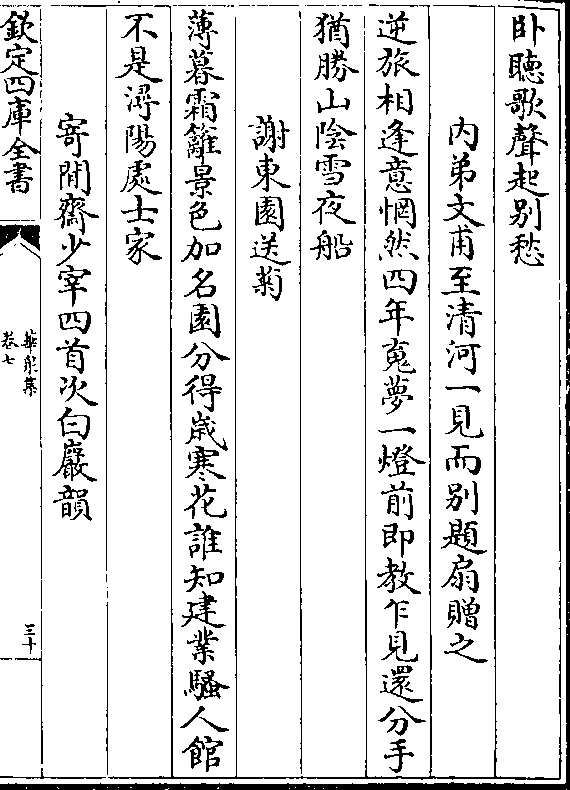 卧聽歌聲起别愁
内弟文甫至清河一見而别題扇贈之
逆旅相逢意惘然四年䰟夢一燈前即教乍見還分手
猶勝山陰雪夜船
謝東園送菊
薄暮霜籬景色加名園分得歲寒花誰知建業騷人館
不是潯陽處士家
寄閒齋少宰四首次白巖韻
欽定四庫全書
華泉集
卷七
三十